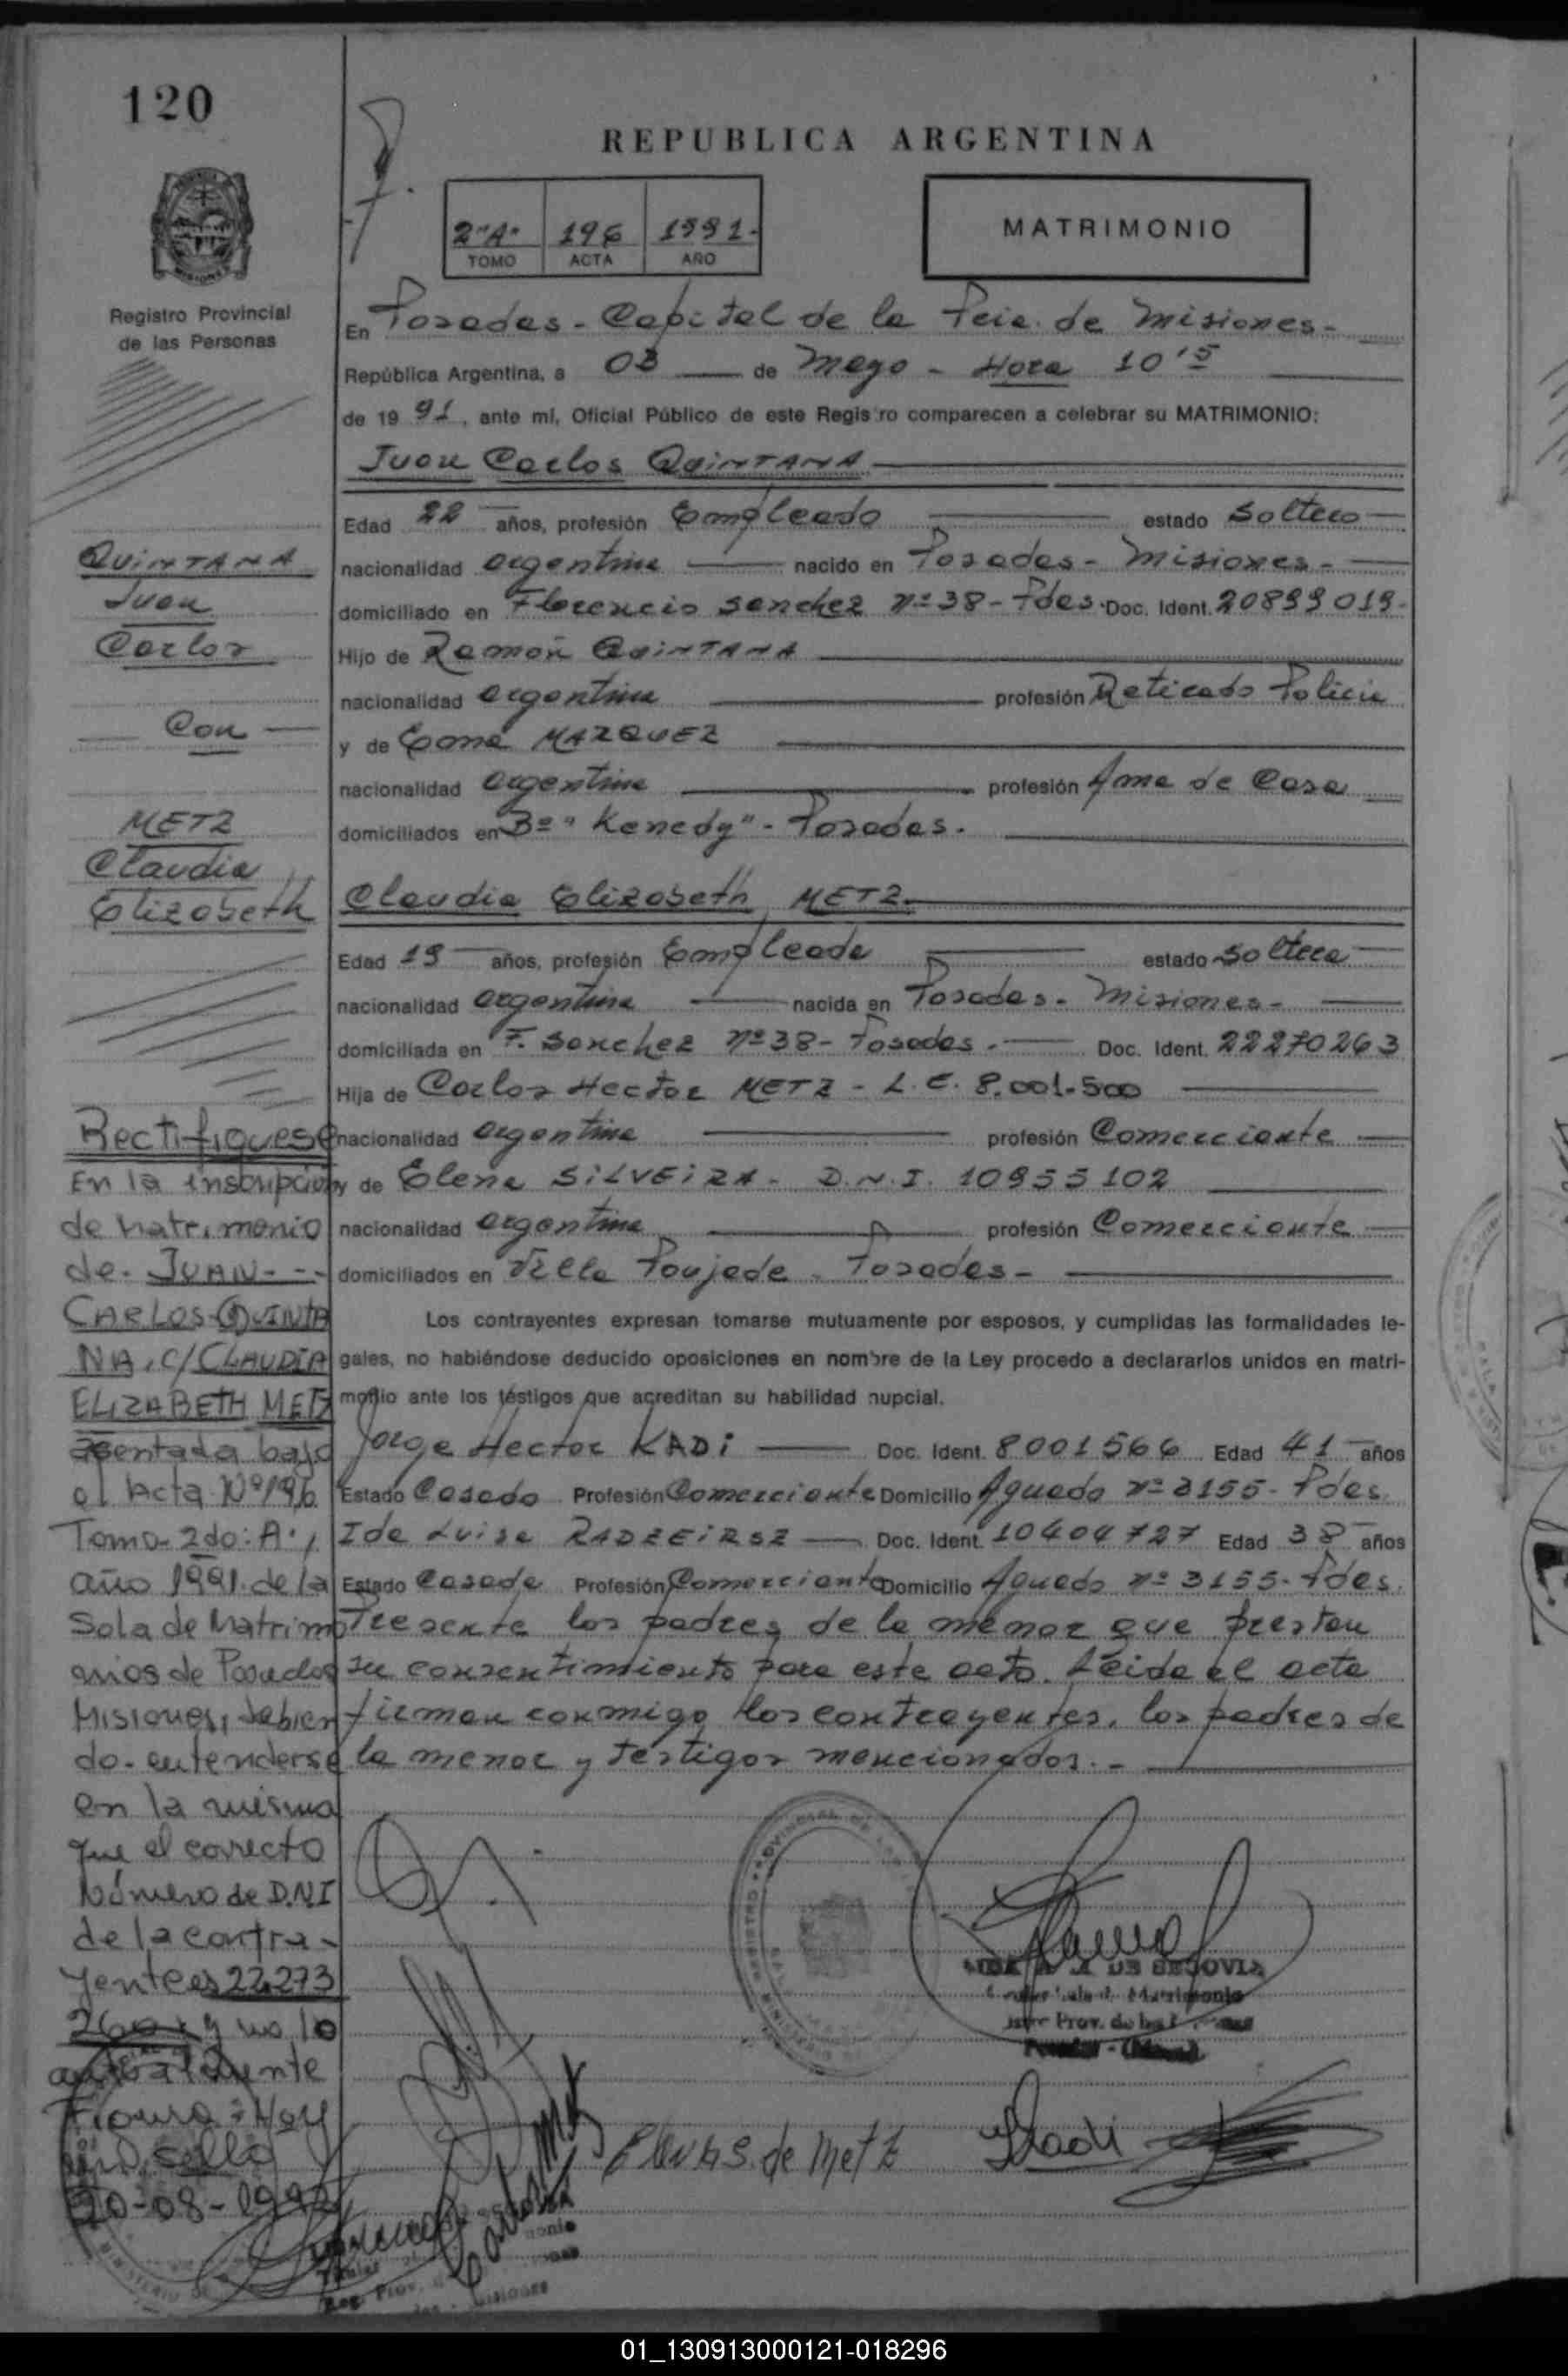 120
REPUBLICA ARGENTINA
2"A" 196 1991.
TOMO ACTA AÑO
MATRIMONIO
Registro Provincial
de las Personas
En Posadas - Capital de la Pcia. de Misiones -
República Argentina, a 03 de Mayo - Hora 10'15
de 1991, ante mí, Oficial Público de este Registro comparecen a celebrar su MATRIMONIO:
Juan Carlos QUINTANA
Edad 22 años, profesión Empleado estado Soltero
nacionalidad argentina nacido en Posadas - Misiones -
domiciliado en Florencio Sanchez nº 38 - Pdas. Doc. Ident. 20899019.
Hijo de Ramón QUINTANA
nacionalidad argentina profesión Retirado Policia
y de Ema MARQUEZ
nacionalidad argentina profesión Ama de Casa
domiciliados en Bº "Kenedy" - Posadas.
Claudia Elizabeth METZ
Edad 19 años, profesión Empleada estado Soltera
nacionalidad argentina nacida en Posadas - Misiones -
domiciliada en F. Sanchez nº 38 - Posadas. Doc. Ident. 22270263
Hija de Carlos Hector METZ - L.E. 8.001.500
nacionalidad argentina profesión Comerciante
y de Elena SILVEIRA - D.N.I. 10955102
nacionalidad argentina profesión Comerciante
domiciliados en Villa Poujade - Posadas -
Los contrayentes expresan tomarse mutuamente por esposos, y cumplidas las formalidades le-
gales, no habiéndose deducido oposiciones en nombre de la Ley procedo a declararlos unidos en matri-
monio ante los testigos que acreditan su habilidad nupcial.
Jorge Hector KADI Doc. Ident. 8001566 Edad 41 años
Estado Casado Profesión Comerciante Domicilio Aguado nº 3155 - Pdas.
Ida Luisa Doc. Ident. 10404727 Edad 38 años
Estado Casada Profesión Comerciante Domicilio Aguado nº 3155 - Pdas.
Presente los padres de la menor que prestan
su consentimiento para este acto. Leida el acta
firman conmigo los contrayentes, los padres de
la menor y testigos mencionados. -
QUINTANA
Juan
Carlos
Con
METZ
Claudia
Elizabeth
Rectifiquese
En la inscripción
de matrimonio
de. JUAN - - -
CARLOS QUINTA
NA, c/ CLAUDIA
ELIZABETH METZ
asentada bajo
el Acta Nº 196
Tomo - 2do: A.,
año 1991. de la
Sala de Matrimo
nios de Posadas
Misiones, debien
do. entenderse
en la misma
que el correcto
Número de D.N.I
de la contra -
yente es 22.273
260 y no lo
anteriormente
Figura: Hoy
sello
20-08-1992
Elena S. de Metz
Kadi
DE SEGOVIA
01_130913000121-018296